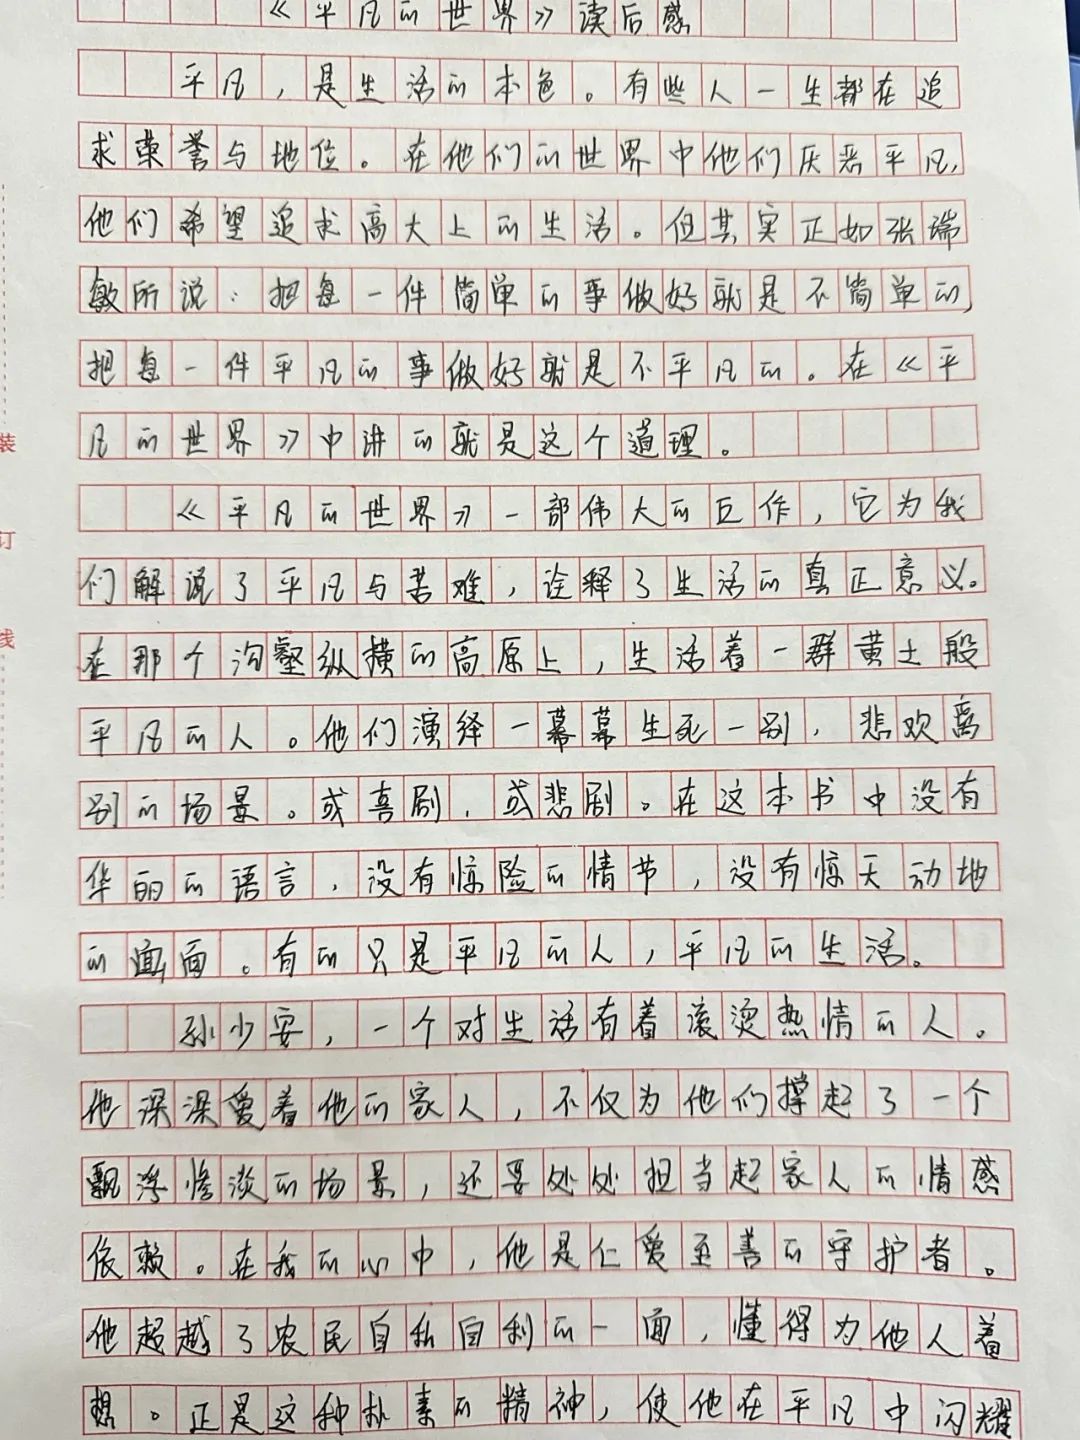 《平凡的世界》读后感
平凡，是生活的本色。有些人一生都在追
求荣誉与地位。在他们的世界中他们厌恶平凡，
他们希望追求高大上的生活。但其实正如张瑞
敏所说：把每一件简单的事做好就是不简单的，
把每一件平凡的事做好就是不平凡的。在《平
凡的世界》中讲的就是这个道理。
《平凡的世界》一部伟大的巨作，它为我
们解说了平凡与苦难，诠释了生活的真正意义。
在那个沟壑纵横的高原上，生活着一群黄土般
平凡的人。他们演绎一幕幕生死一别，悲欢离
别的场景。或喜剧，或悲剧。在这本书中没有
华丽的语言，没有惊险的情节，没有惊天动地
的画面。有的只是平凡的人，平凡的生活。
孙少安，一个对生活有着滚烫热情的人。
他深深爱着他的家人，不仅为他们撑起了一个
飘浮惨淡的场景，还要处处担当起家人的情感
依赖。在我的心中，他是仁爱至善的守护者。
他超越了农民自私自利的一面，懂得为他人着
想。正是这种朴素的精神，使他在平凡中闪耀
装
订
线